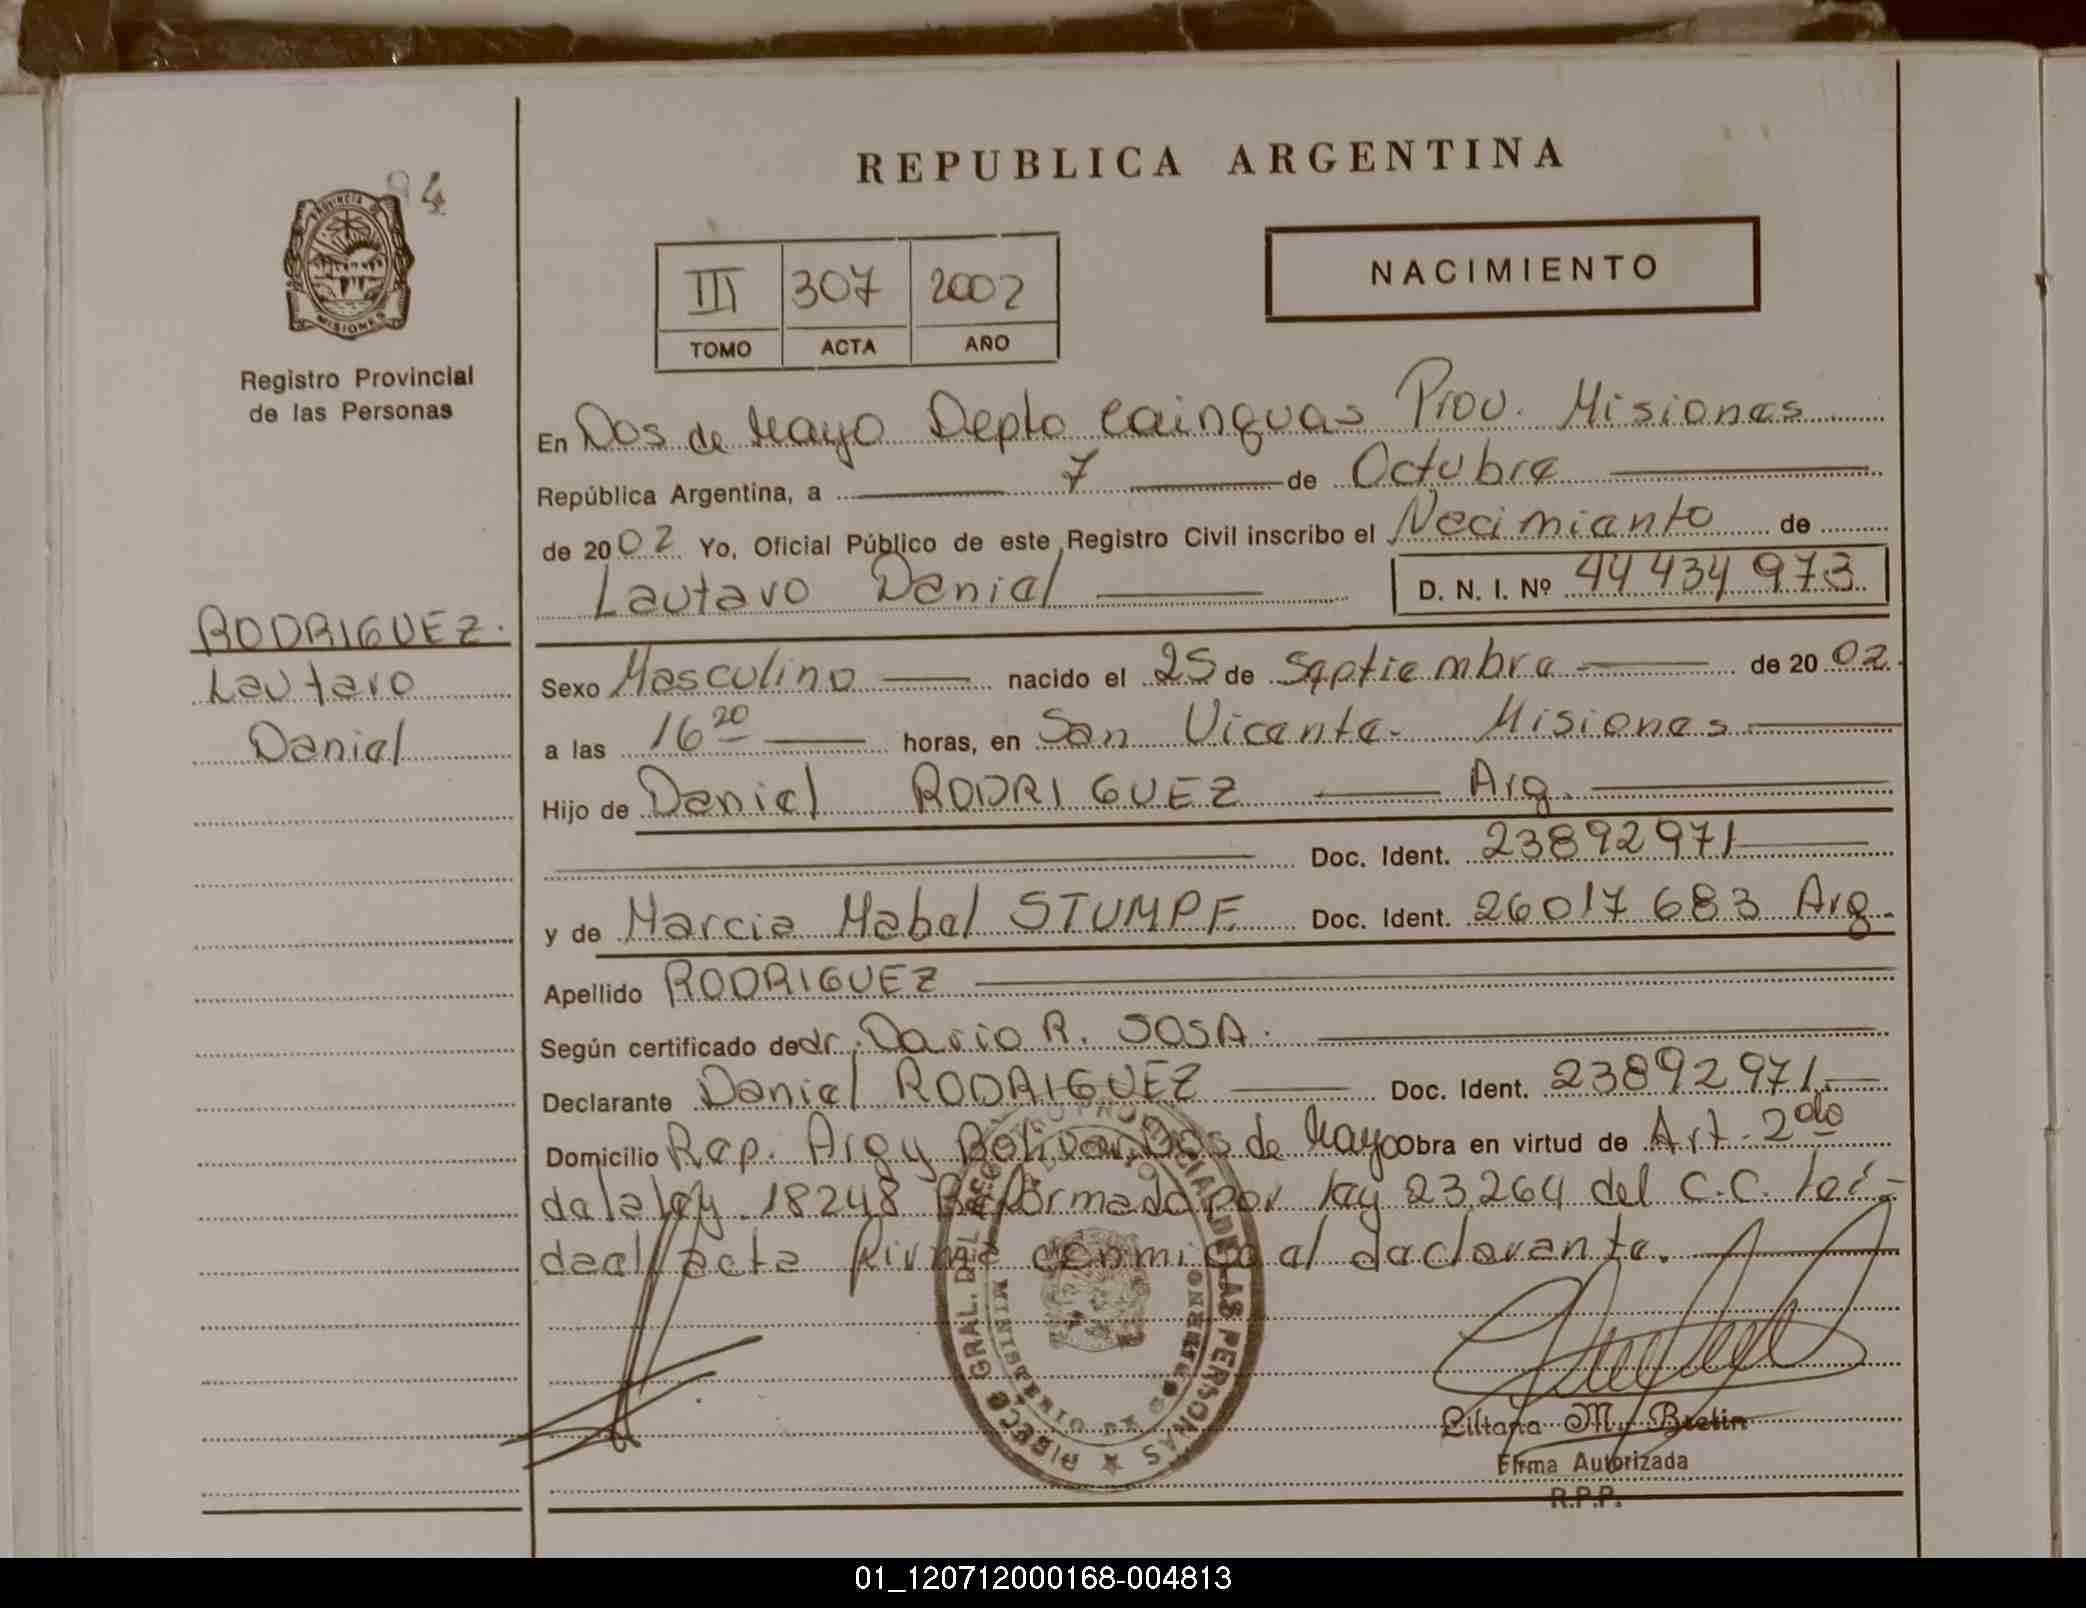 94
REPUBLICA ARGENTINA
PROVINCIA DE
MISIONES
Registro Provincial
de las Personas
III 307 2002
TOMO ACTA AÑO
NACIMIENTO
En Dos de Mayo Depto Cainguas Prov. Misiones
República Argentina, a 7 de Octubre
de 2002 Yo, Oficial Público de este Registro Civil inscribo el Nacimiento de
Lautaro Daniel D. N. I. Nº 44 434 973
RODRIGUEZ.
Lautaro
Daniel
Sexo Masculino nacido el 25 de Septiembre de 2002
a las 16 20 horas, en San Vicente - Misiones
Hijo de Daniel RODRIGUEZ Arg.
Doc. Ident. 23892971
y de Marcia Mabel STUMPF. Doc. Ident. 26017683 Arg.
Apellido RODRIGUEZ
Según certificado de dr. Dario R. SOSA.
Declarante Daniel RODRIGUEZ Doc. Ident. 23892971.
Domicilio Rep. Arg y Bolivar Dos de Mayo obra en virtud de Art. 2do
de la ley 18248 Reformada por ley 23.264 del C.C. lei-
da el acta firma conmigo al declarante.
DIRECC GRAL. DEL REGISTRO PROVINCIAL DE LAS PERSONAS
MINISTERIO DE GOBIERNO
Liliana M. Bretin
Firma Autorizada
R.P.P.
01_120712000168-004813